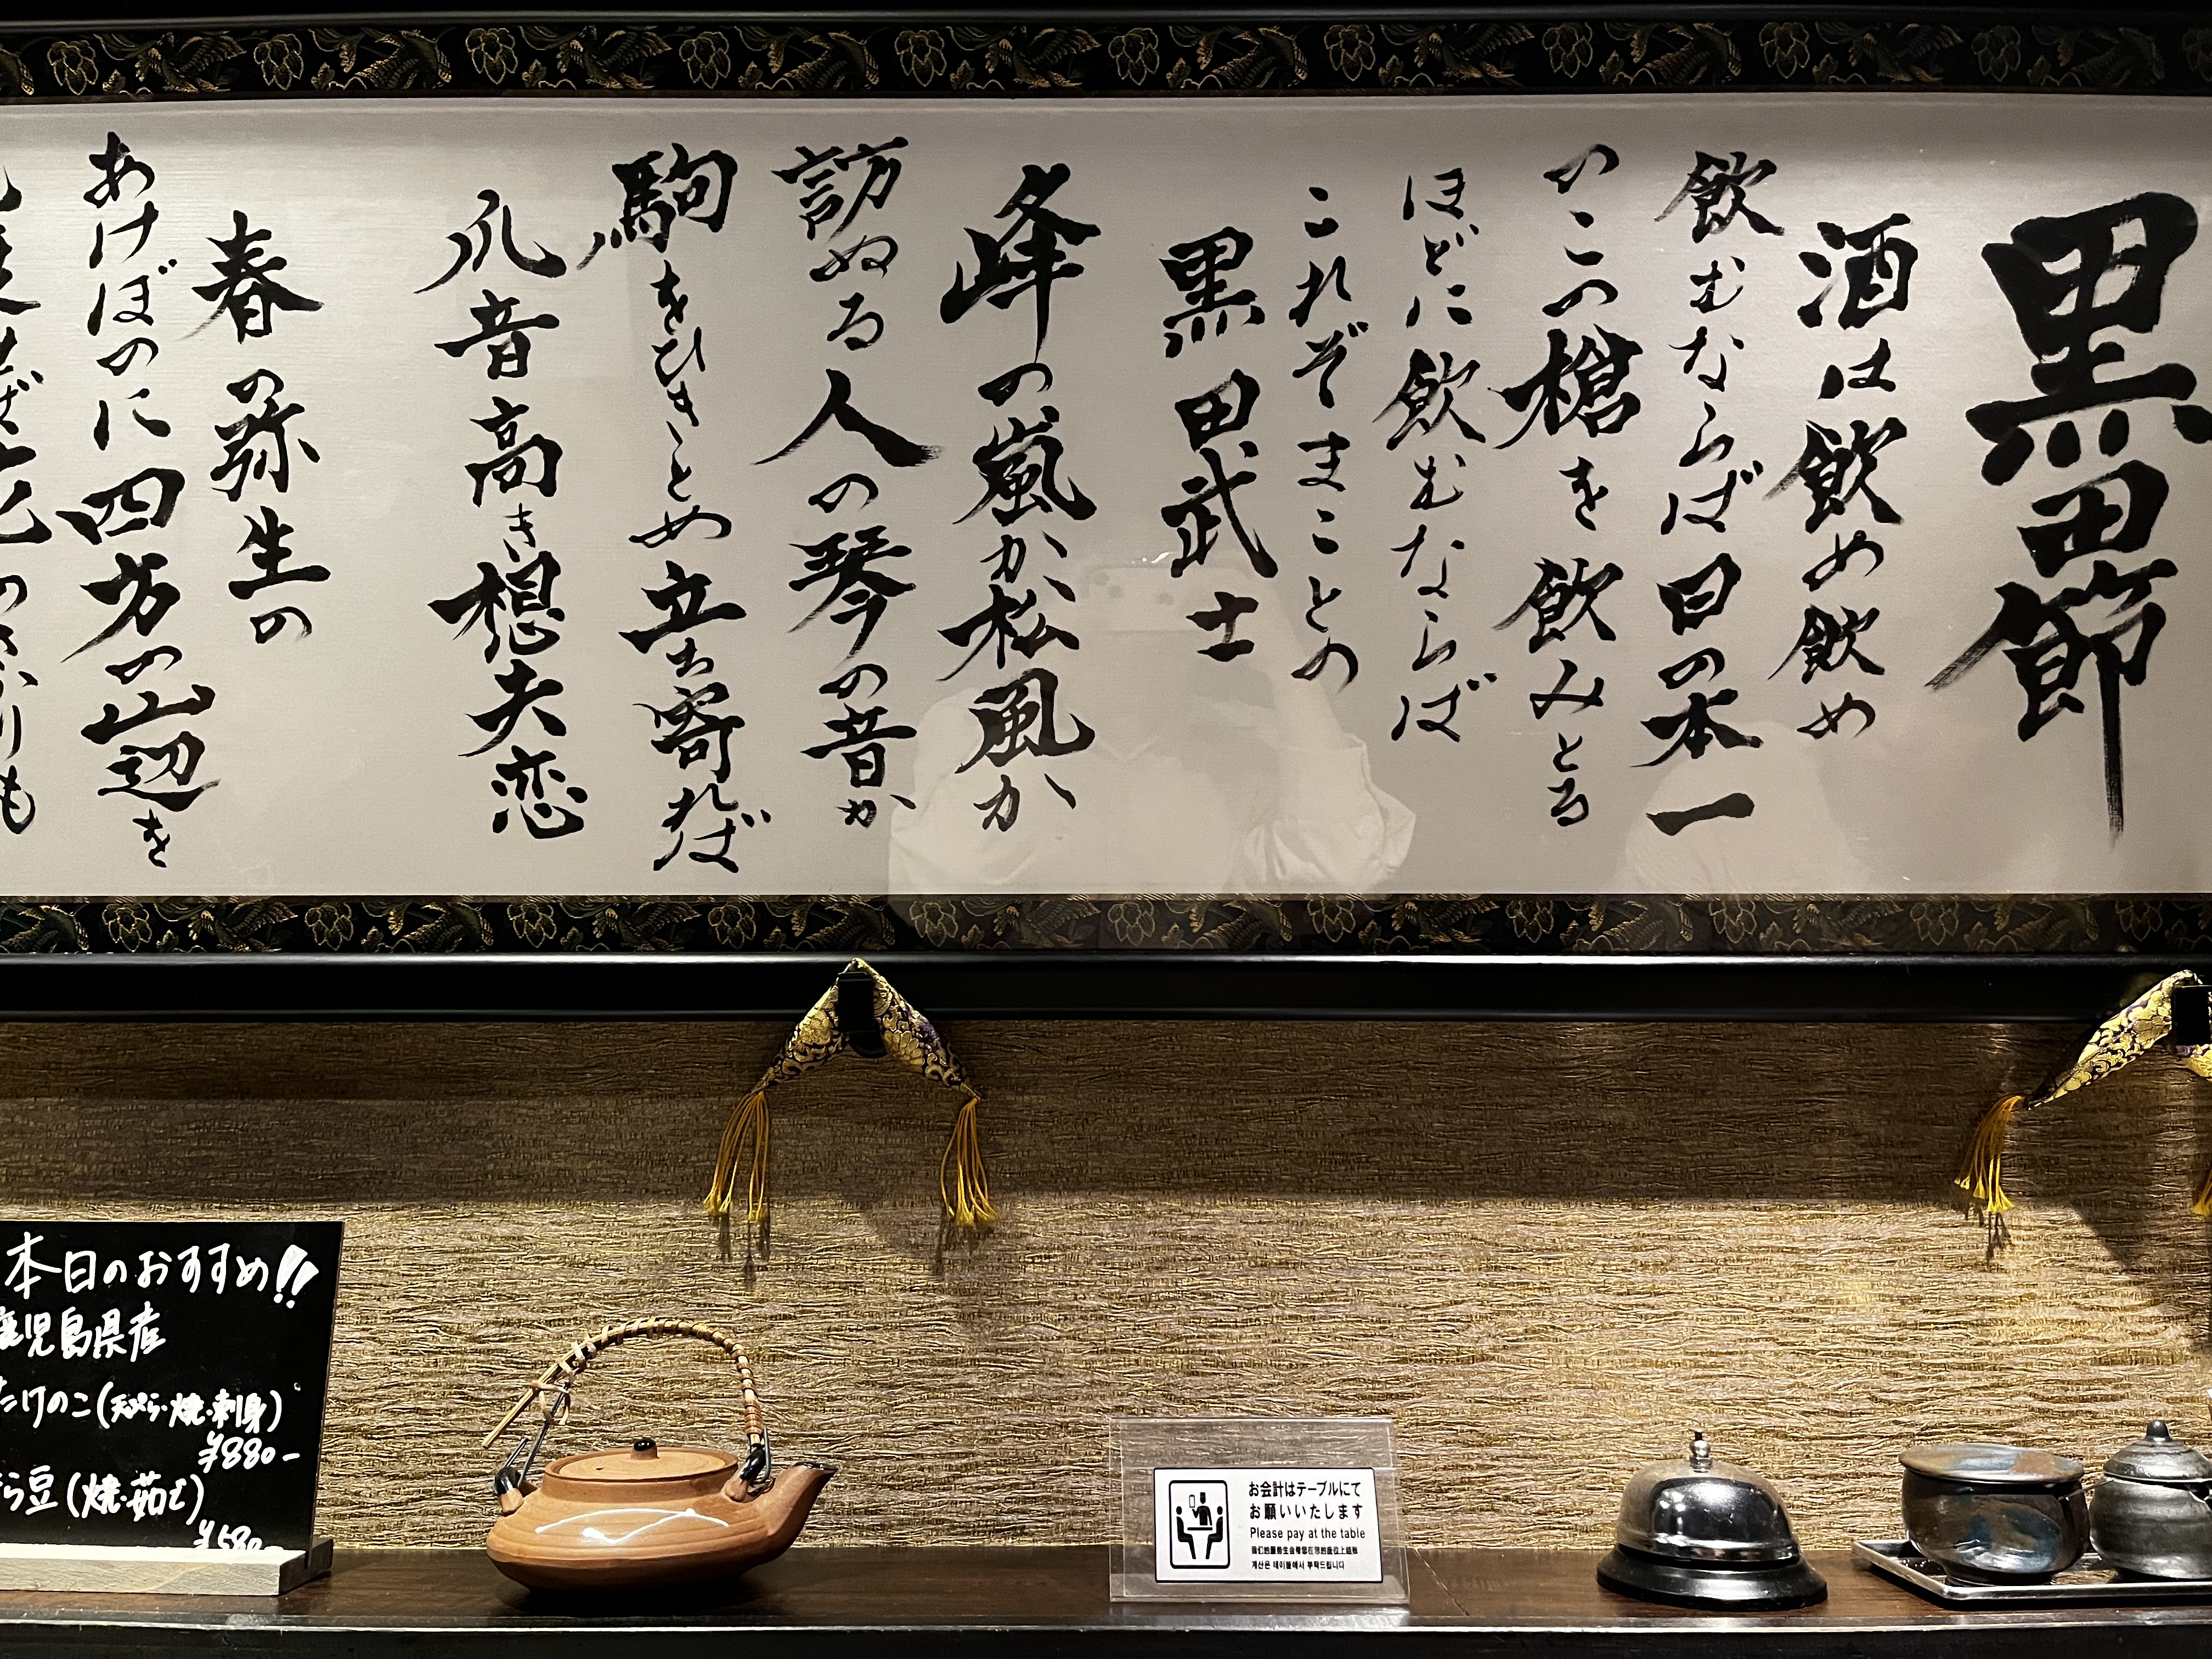 黒田節
酒は飲め飲め
飲むならば日の本一
のこの槍を飲みとる
ほどに飲むならば
これぞまことの
黒田武士
峰の嵐か松風か
訪ぬる人の琴の音か
駒をひきとめ立ち寄れば
爪音高き想夫恋
春の弥生の
あけぼのに四方の山辺を
本日のおすすめ!!
児島県産
たけのこ(天ぷら・焼・刺身)
¥880-
ら豆(焼・茹で)
¥580-
お会計はテーブルにて
お願いいたします
Please pay at the table
계산은 테이블에서 부탁드립니다